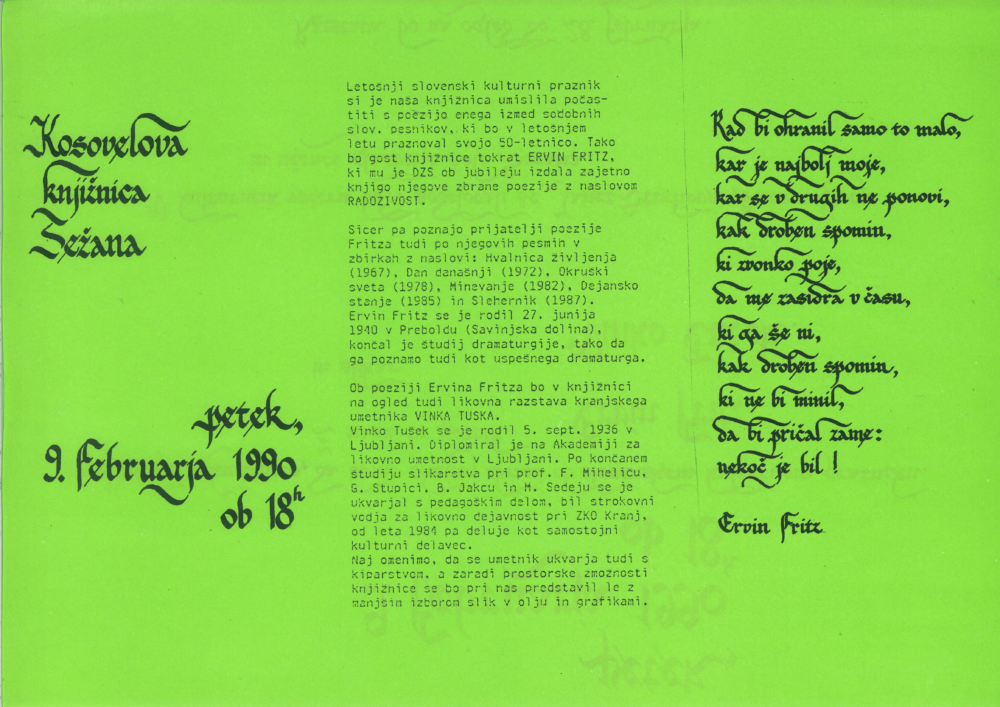 Kosovelova
knjižnica
Sežana
petek,
9. februarja 1990
ob 18h
Letošnji slovenski kulturni praznik
si je naša knjižnica umislila počas-
titi s poezijo enega izmed sodobnih
slov. pesnikov, ki bo v letošnjem
letu praznoval svojo 50-letnico. Tako
bo gost knjižnice tokrat ERVIN FRITZ,
ki mu je DZS ob jubileju izdala zajetno
knjigo njegove zbrane poezije z naslovom
RADOŽIVOST.
Sicer pa poznajo prijatelji poezije
Fritza tudi po njegovih pesmih v
zbirkah z naslovi: Hvalnica življenja
(1967), Dan današnji (1972), Okruški
sveta (1978), Minevanje (1982), Dejansko
stanje (1985) in Slehernik (1987).
Ervin Fritz se je rodil 27. junija
1940 v Preboldu (Savinjska dolina),
končal je študij dramaturgije, tako da
ga poznamo tudi kot uspešnega dramaturga.
Ob poeziji Ervina Fritza bo v knjižnici
na ogled tudi likovna razstava kranjskega
umetnika VINKA TUŠKA.
Vinko Tušek se je rodil 5. sept. 1936 v
Ljubljani. Diplomiral je na Akademiji za
likovno umetnost v Ljubljani. Po končanem
študiju slikarstva pri prof. F. Miheliču,
G. Stupici, B. Jakcu in M. Sedeju se je
ukvarjal s pedagoškim delom, bil strokovni
vodja za likovno dejavnost pri ZKO Kranj,
od leta 1984 pa deluje kot samostojni
kulturni delavec.
Naj omenimo, da se umetnik ukvarja tudi s
kiparstvom, a zaradi prostorske zmožnosti
knjižnice se bo pri nas predstavil le z
manjšim izborom slik v olju in grafikami.
Rad bi ohranil samo to malo,
kar je najbolj moje,
kar se v drugih ne ponovi,
kak droben spomin,
ki zvonko poje,
da me zasidra v času,
ki ga še ni,
kak droben spomin,
ki ne bi minil,
da bi pričal zame:
nekoč je bil!
Ervin Fritz